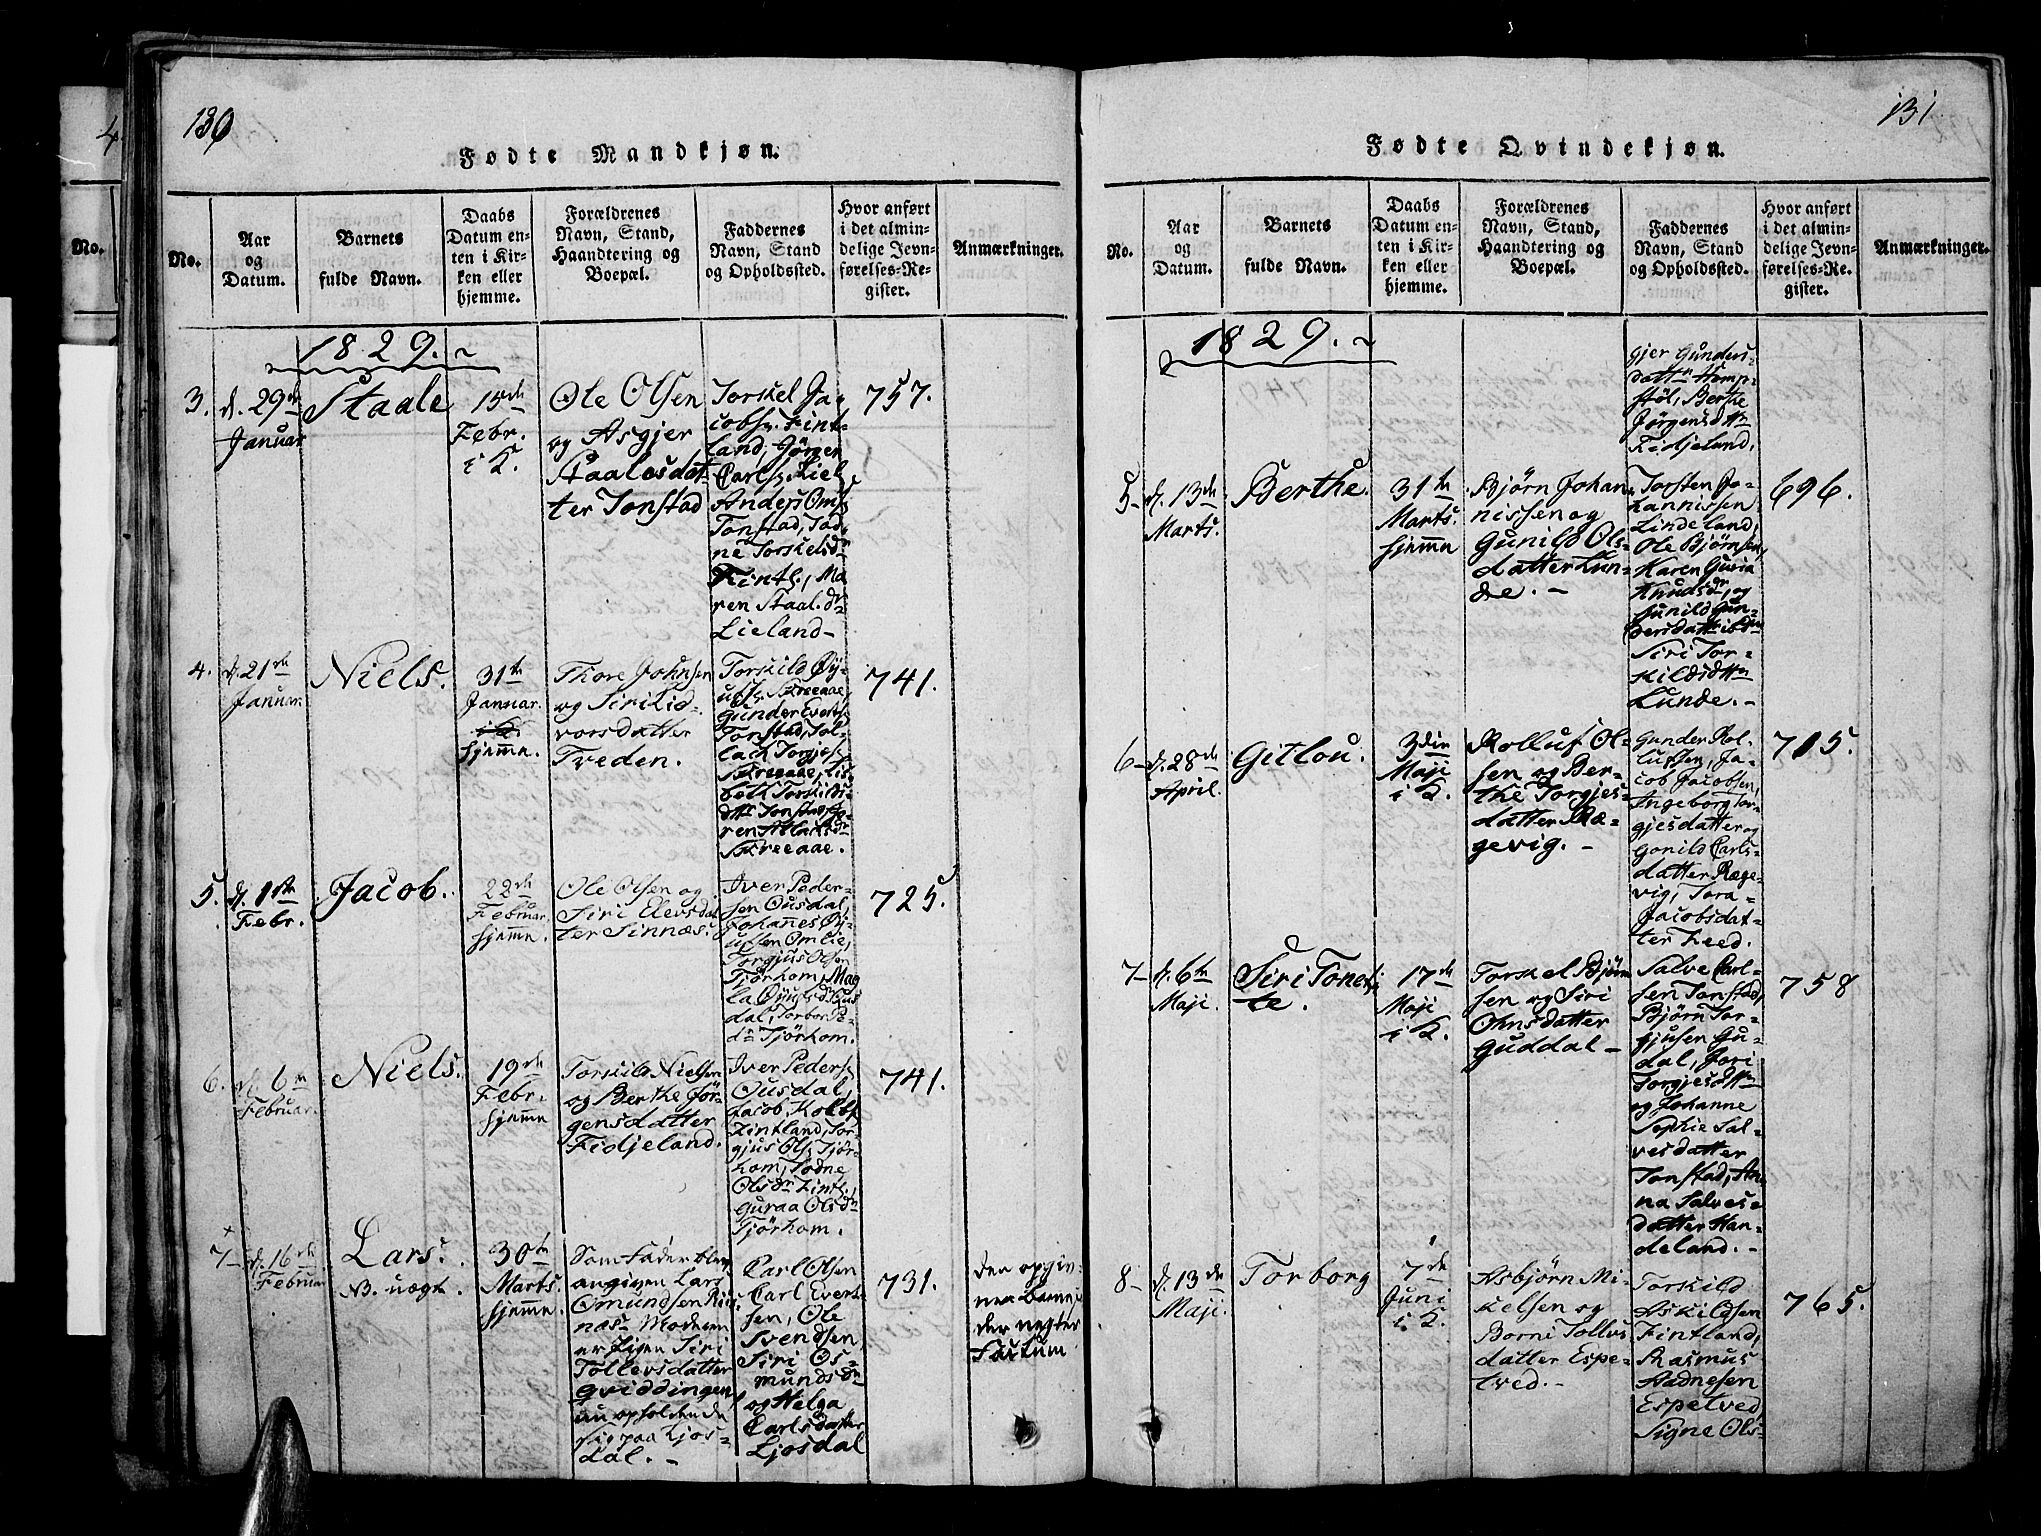 130
Fødte Mandkjøn.
No.
Aar
og
Datum.
Barnets
fulde Navn.
Daabs
Datum en-
ten i Kir-
ken eller
hjemme.
Forældrenes
Navn, Stand,
Haandtering og
Boepæl.
Faddernes
Navn, Stand
og Opholdssted.
Hvor anført
i det almin-
delige Jevn-
førelses-Re-
gister.
Anmærkninger.
1829.
3.
d. 29de
Januar
Staale
15de
Febr.
i K.
Ole Olsen
og Asgjer
Staalesdat-
ter Tonstad
Torskel Ja-
cobs. Fint-
land, Jørgen
Carls. Liel
Anders Oms.
Tonstad, Tod-
ne Torskelsdr
Fintl., Ma-
ren Staal.dr
Lieland
757.
4.
d. 21de
Januar.
Niels.
31te
Januar.
hjemme.
Thore Johnsen
og Siri Lid-
vorsdatter
Tveden.
Torskild Øy-
ufs. Skreeaae,
Gunder Everts.
Tonstad, Sal-
lach Torgjes.
Skreeaae, Lis-
beth Torskilds-
dttr Tonstad,
ren Atlaksdr
Skreeaae.
741.
5.
d. 1ste
Febr.
Jacob.
22de
Februar.
hjemme.
Ole Olsen og
Siri Elevsdat-
ter Sinnæs.
Iver Peder-
sen Ousdal,
Johannes Øy-
ufsen Omlie,
Torgjus Olsen
Tjørhom, Mag-
la Øyufsdr Ous-
dal, Torbor Pe-
dr Tjørhom.
725.
6.
d. 6te
Februar.
Niels.
19de
Febr.
hjemme
Torskild Nielsen
og Berthe Jør-
gensdatter
Fidjeland.
Iver Peders.
Ousdal,
Jacob Kolbs.
Fintland, Tor-
gjus Ols. Tjør-
hom, Todne
Olsdr Fintl.,
Guraa Olsdr
Tjørhom.
741.
7
d. 16de
Februar
Lars.
NB. uægt.
30te
Marts
hjemme
Som Fader blev
angiven Lars
Omundsen Ris-
næs. Moderen
er Pigen Siri
Tollevsdatter
Qviddingen,
nu opholdende
sig paa Ljos-
dal.
Carl Olsen
Carl Evert-
sen, Ole
Svendsen
Siri Os-
mundsdr
og Helga
Carlsdatter
Ljosdal
731.
Den opgiv-
ne Barne-
der negter
Factum
131
Fødte Qvindekjøn.
No.
Aar
og
Datum.
Barnets
fulde Navn.
Daabs
Datum en-
ten i Kir-
ken eller
hjemme.
Forældrenes
Navn, Stand,
Haandtering og
Boepæl.
Faddernes
Navn, Stand
og Opholdssted.
Hvor anført
i det almin-
delige Jevn-
førelses-Re-
gister.
Anmærkninger.
1829.
Gjer Gunders-
dattr Homp-
støl, Berthe
Jørgensdttr
Fidjeland.
5
d. 13de
Marts.
Berthe.
31te
Marts.
hjemme
Bjørn Johan-
nissen og
Gunild Ols-
datter Lun-
de.
Torsten Jo-
hannissen
Lindeland,
Ole Bjørnsen,
Karen Guria
Knudsdr, og
Gunild Gun-
dersdattr ibdm
Siri Tor-
kildsdttr
Lunde.
696.
6
d. 28de
April.
Gitlou.
3die
Maji
i K.
Rolluf Ol-
sen og Ber-
the Torgjes-
datter Ræ-
gevig.
Gunder Rol-
lufsen, Ja-
cob Jacobsen,
Ingeborg Tor-
gjesdatter og
Gonild Carls-
datter Ræge-
vig, Tora
Jacobsdat-
ter Feed.
705.
7
d. 6te
Maji.
Siri Tonet-
te.
17de
Maji
i K.
Torskel Bjørn-
sen og Siri
Ohnsdatter
Guddal
Salve Carl-
sen Tonstad,
Bjørn Tor-
gjusen Gu-
dal, Jori
Torgjesdttr
og Johanne
Sophie Sal-
vesdatter
Tonstad, An-
na Salves-
datter Han-
deland.
758
8
d. 13de
Maji.
Torborg
7de
Juni
i K.
Asbjørn Mi-
kelsen og
Borni Tollus-
datter Espe-
tved.
Torskild
Askildsen
Fintland,
Rasmus
Aadnesen
Espetved
Signe Ols-
765.